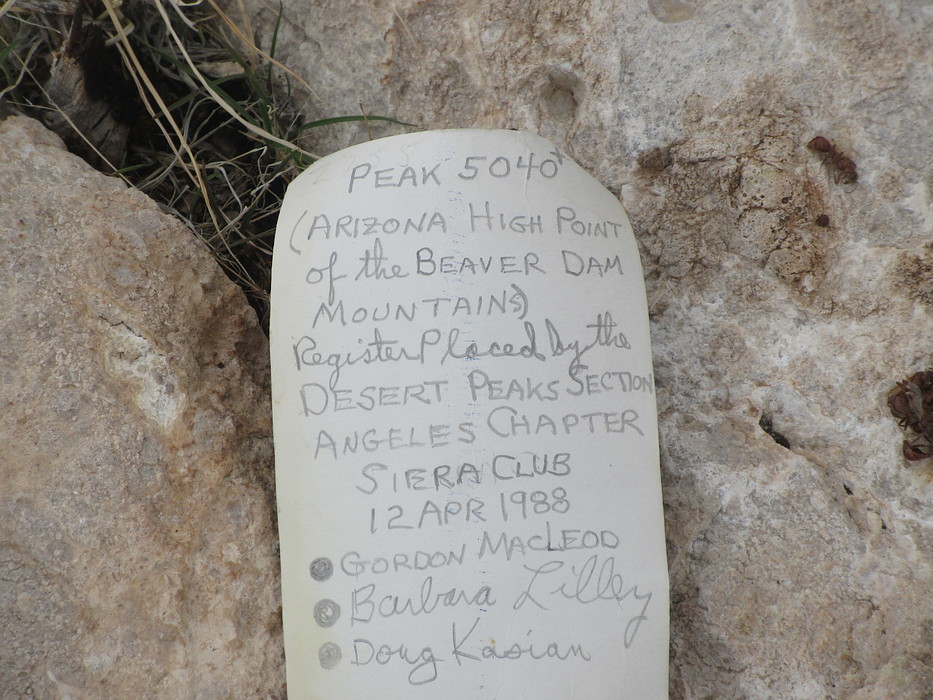 PEAK 5040+
(ARIZONA HIGH POINT
of the BEAVER DAM
MOUNTAINS)
Register Placed by the
DESERT PEAKS SECTION
ANGELES CHAPTER
SIERA CLUB
12 APR 1988
GORDON MACLEOD
Barbara Lilley
Doug Kasian